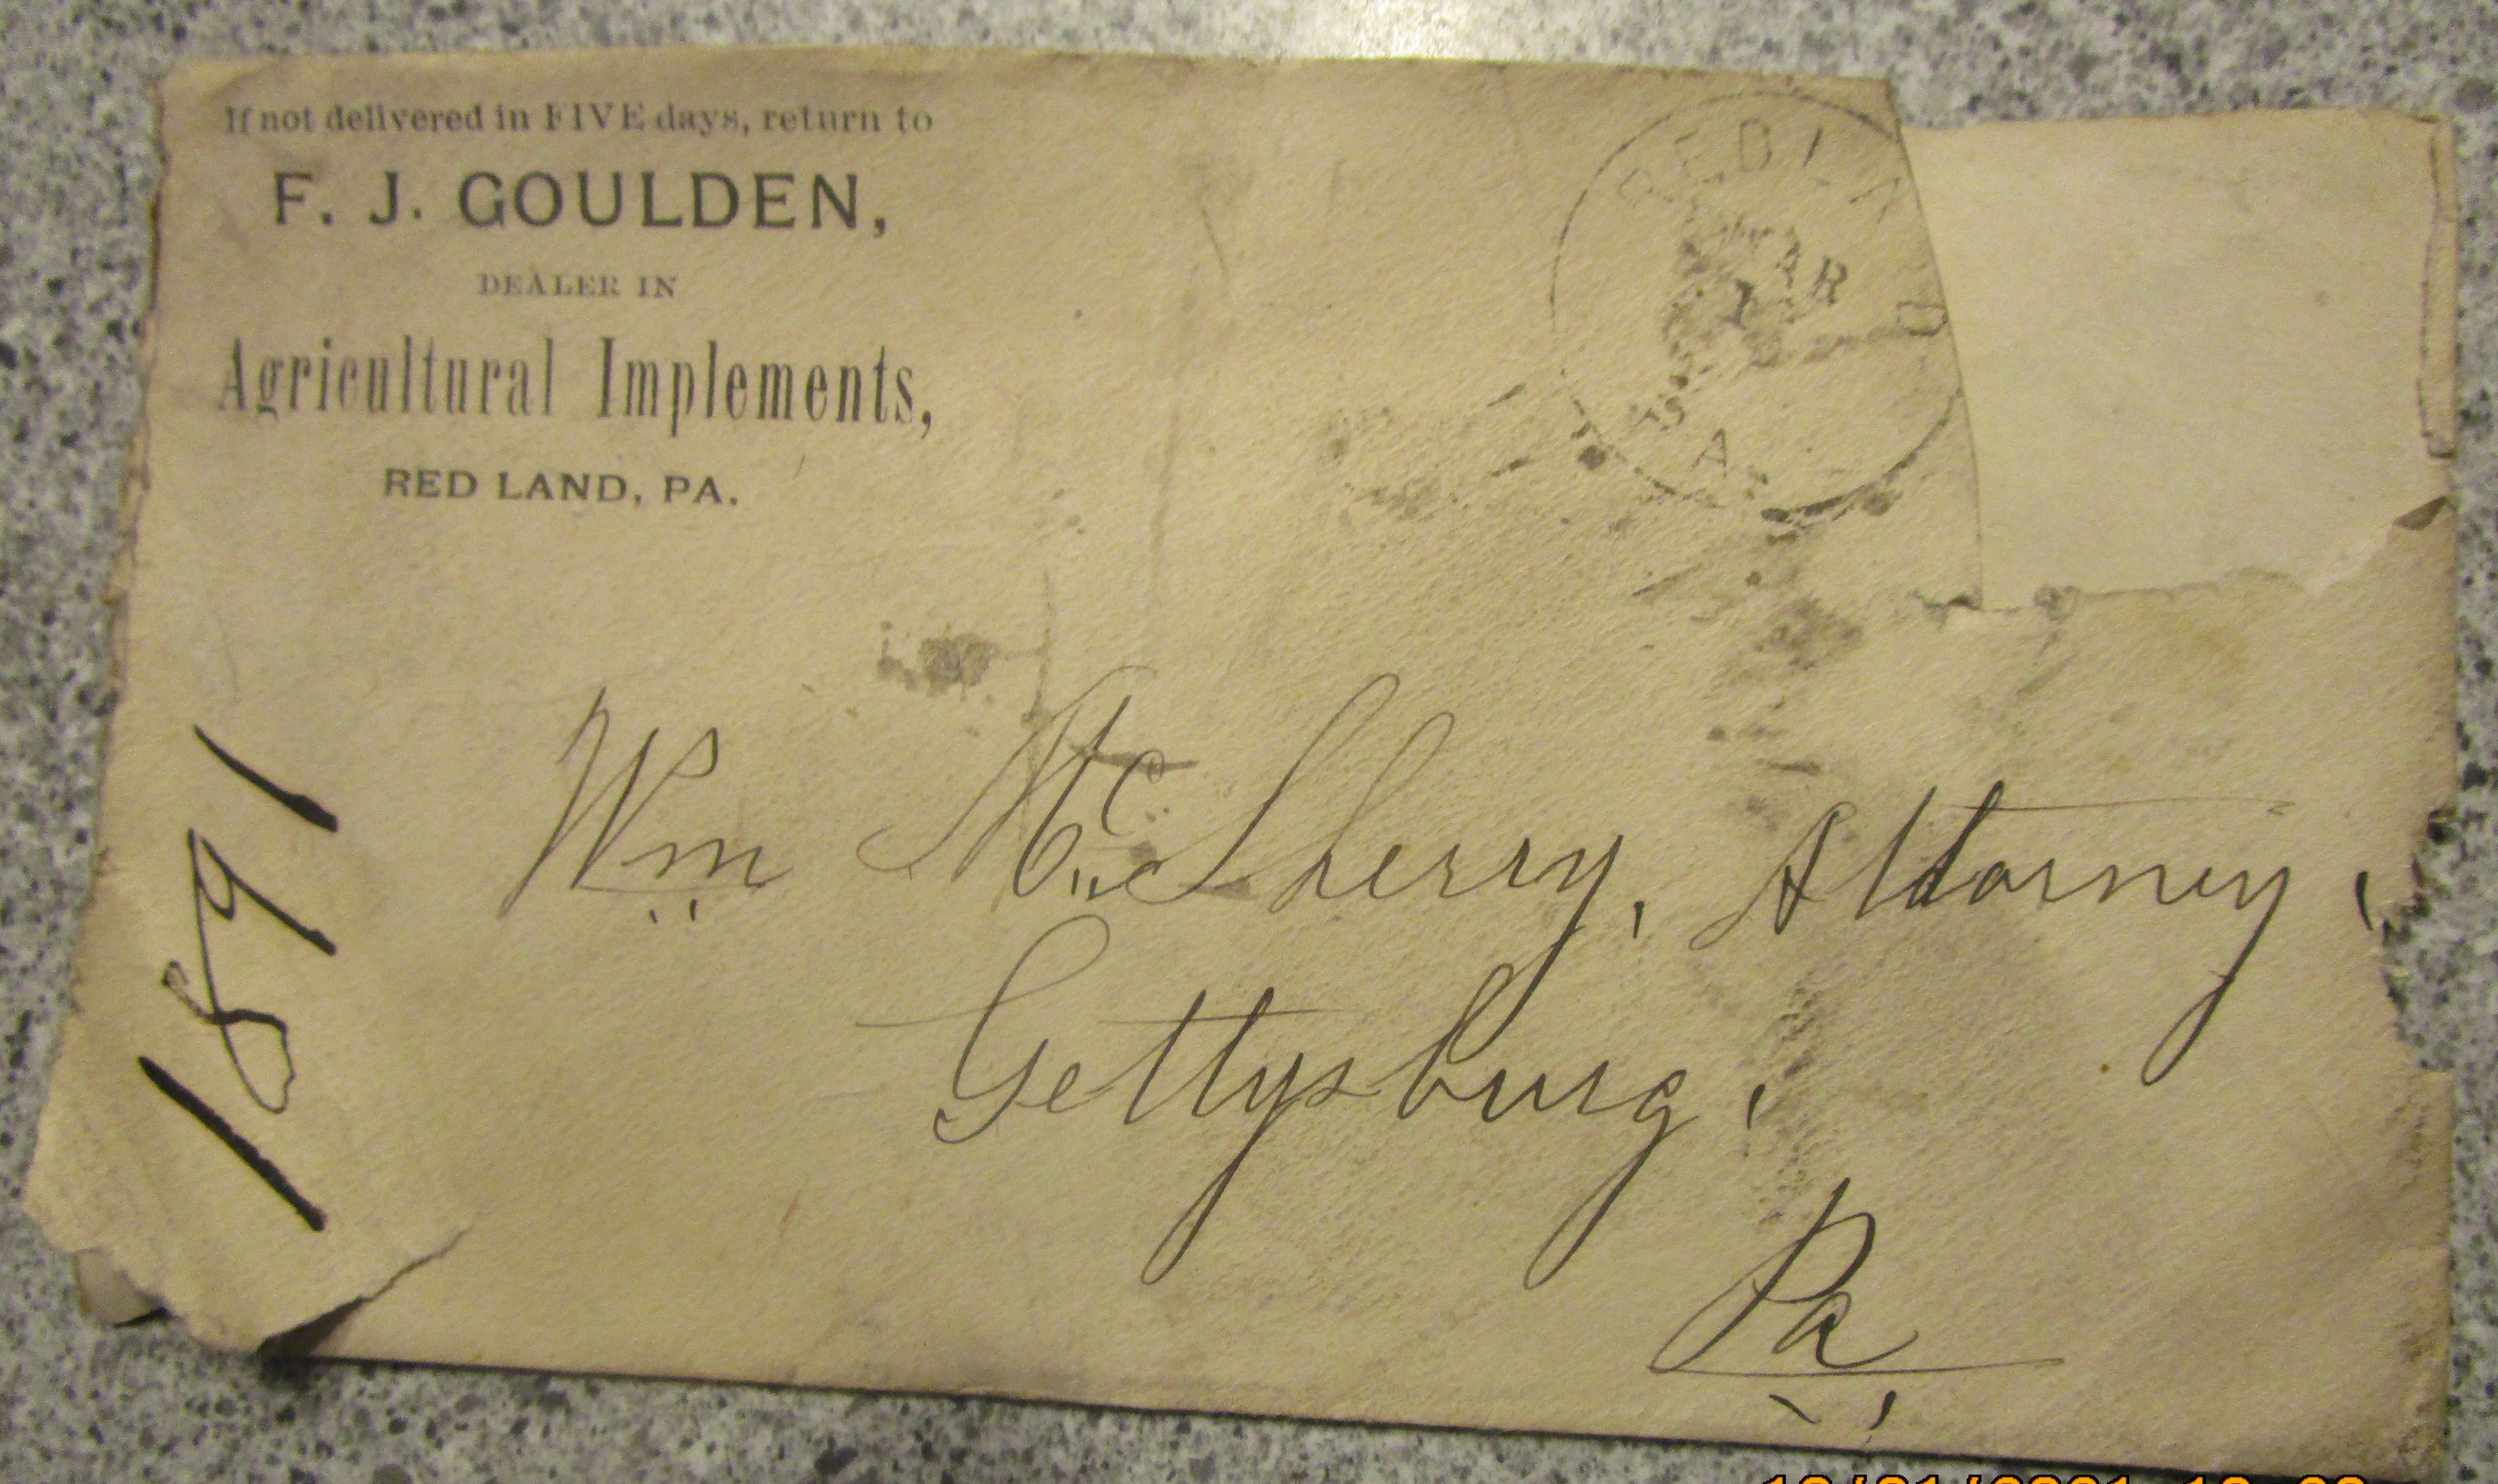 If not delivered in FIVE days, return to
F. J. GOULDEN,
DEALER IN
Agricultural Implements,
RED LAND, PA.
Wm McSherry, Attorney,
Gettysburg,
Pa
1891